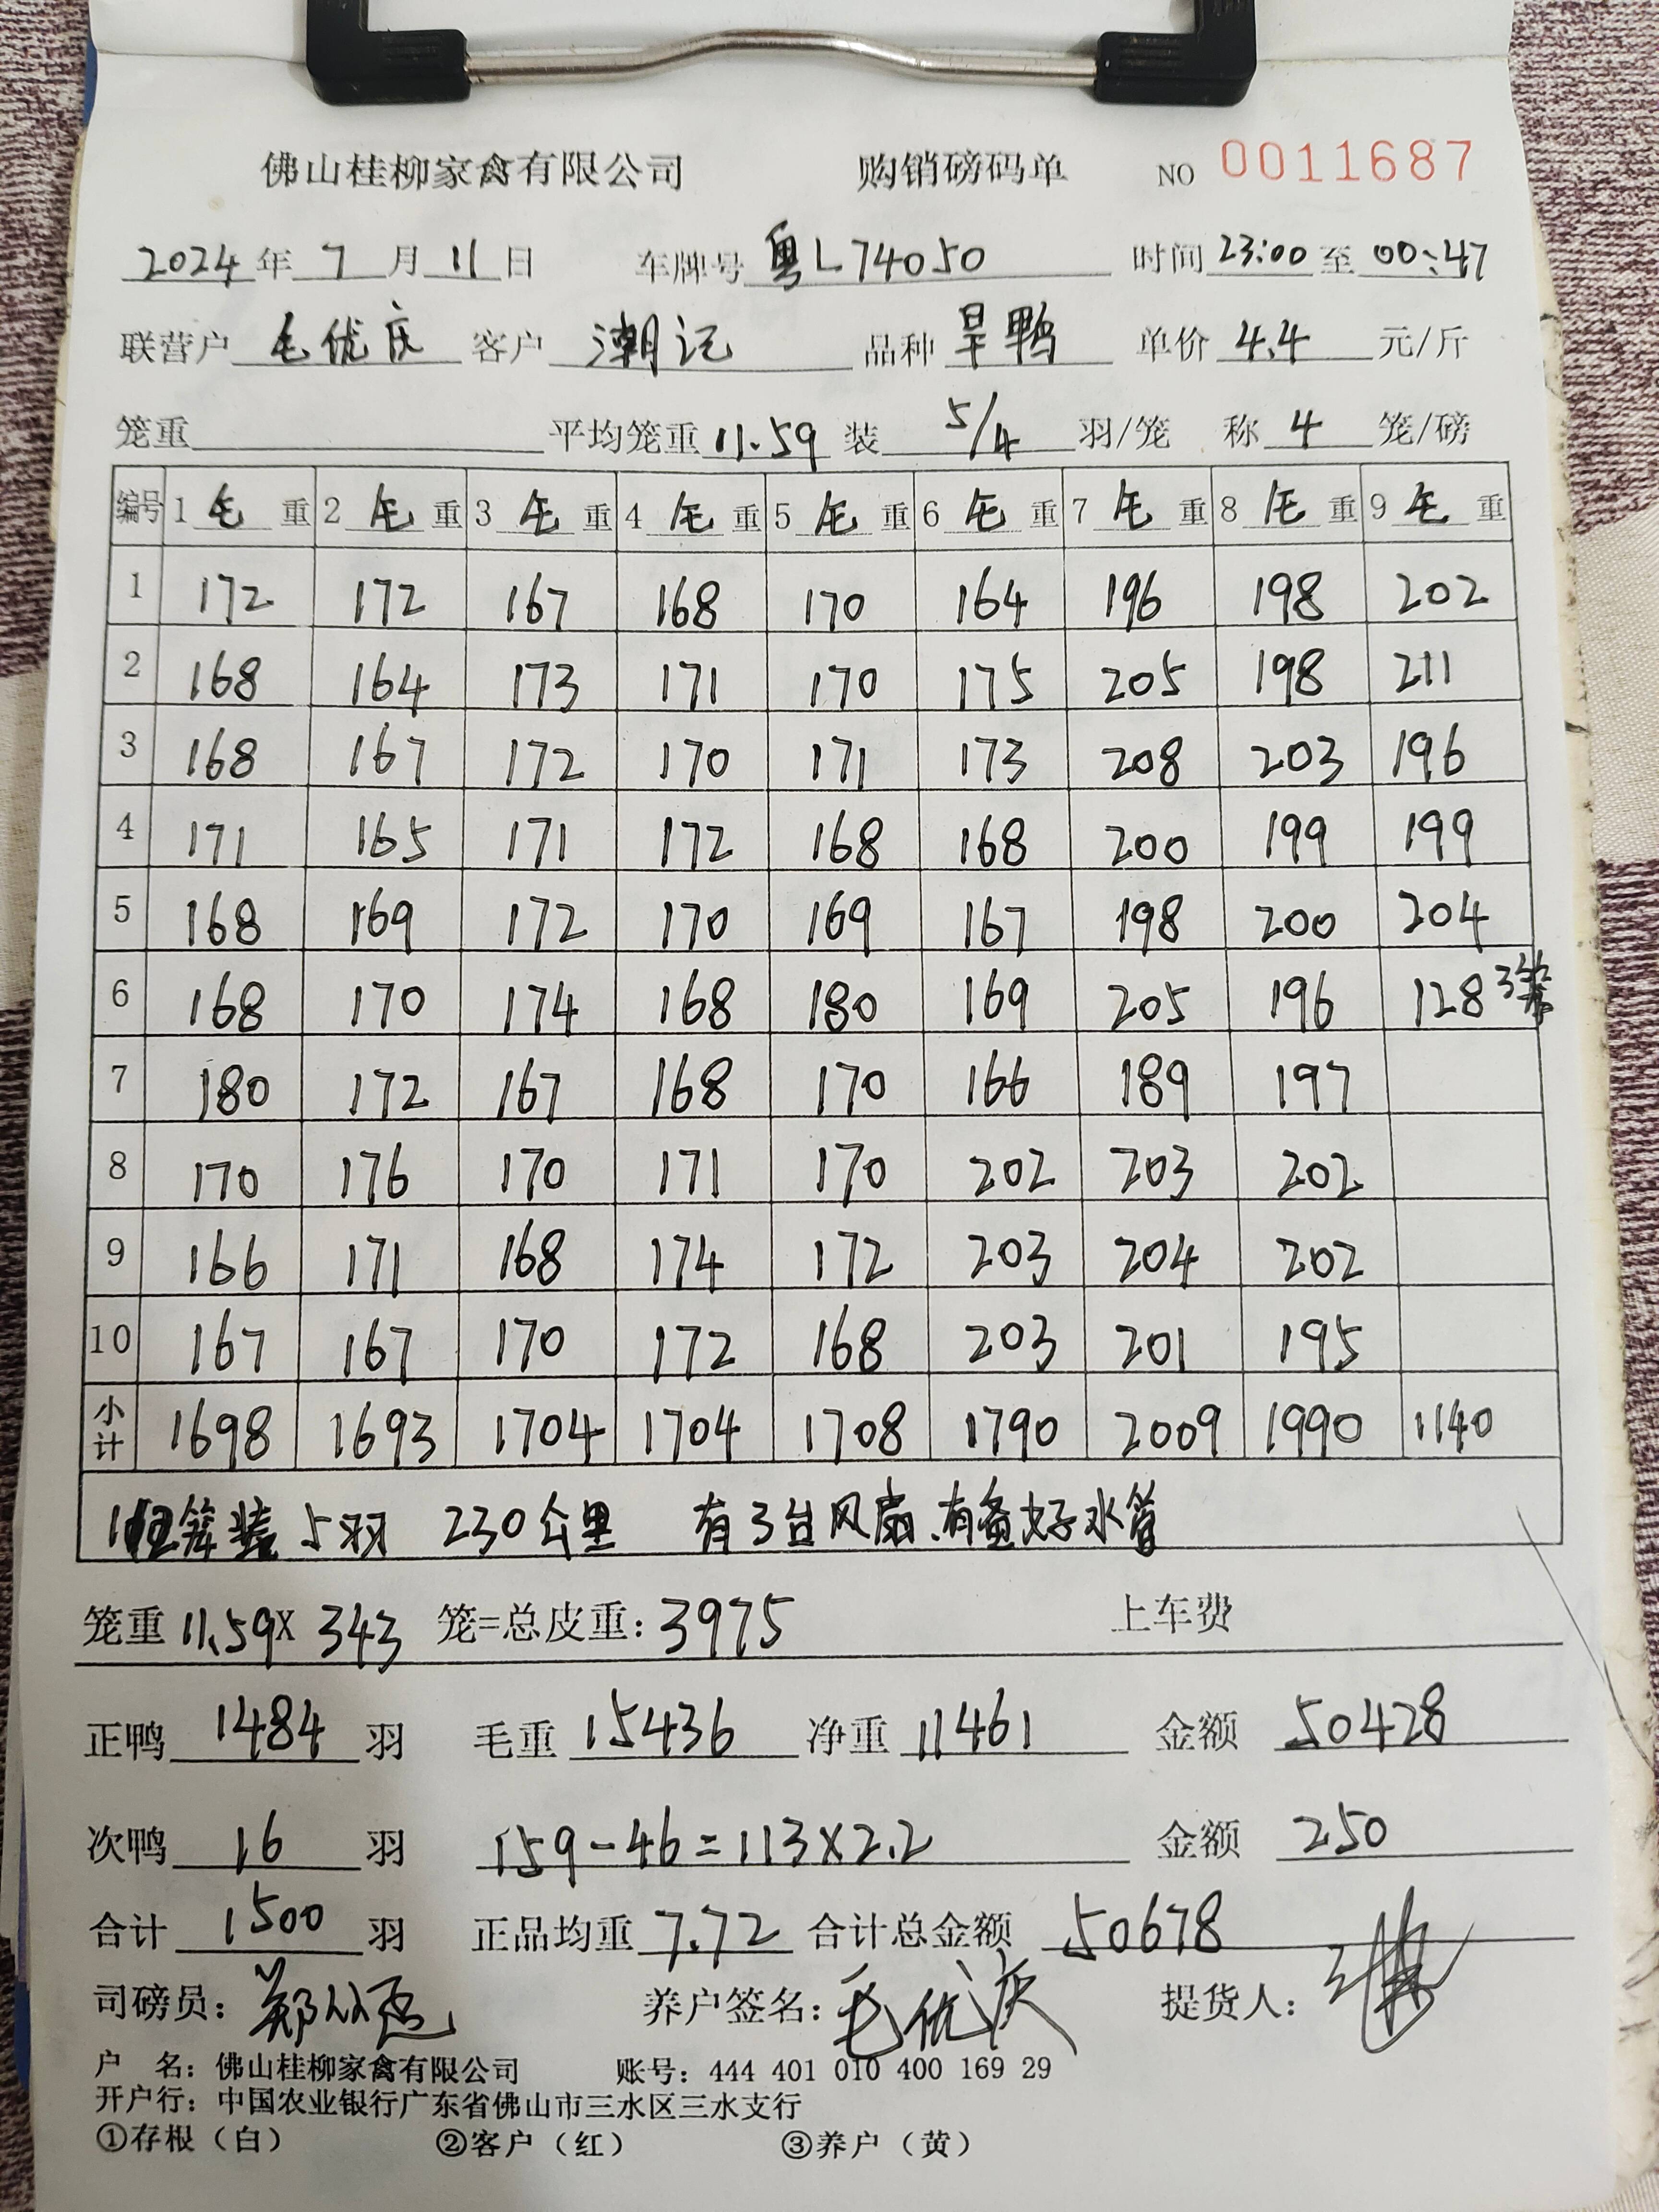 佛山桂柳家禽有限公司 购销磅码单 NO 0011687
2024年 7月 11日 车牌号 粤L74050 时间 23:00 至 00:47
联营户 毛优庆 客户 潮记 品种 旱鸭 单价 4.4 元/斤
笼重 平均笼重 11.59 装 5/4 羽/笼 称 4 笼/磅
编号 1 毛 重 2 毛 重 3 毛 重 4 毛 重 5 毛 重 6 毛 重 7 毛 重 8 毛 重 9 毛 重
1 172 172 167 168 170 164 196 198 202
2 168 164 173 171 170 175 205 198 211
3 168 167 172 170 171 173 208 203 196
4 171 165 171 172 168 168 200 199 199
5 168 169 172 170 169 167 198 200 204
6 168 170 174 168 180 169 205 196 128 3笼
7 180 172 167 168 170 166 189 197
8 170 176 170 171 170 202 203 202
9 166 171 168 174 172 203 204 202
10 167 167 170 172 168 203 201 195
小计 1698 1693 1704 1704 1708 1790 2009 1990 1140
笼装 5羽 230公里 有3台风扇、有备好水管
笼重 11.59X 343 笼=总皮重: 3975 上车费
正鸭 1484 羽 毛重 15436 净重 11461 金额 50428
次鸭 16 羽 159-46=113X2.2 金额 250
合计 1500 羽 正品均重 7.72 合计总金额 50678
司磅员: 养户签名: 毛优庆 提货人:
户 名: 佛山桂柳家禽有限公司 账号: 444 401 010 400 169 29
开户行: 中国农业银行广东省佛山市三水区三水支行
①存根（白） ②客户（红） ③养户（黄）